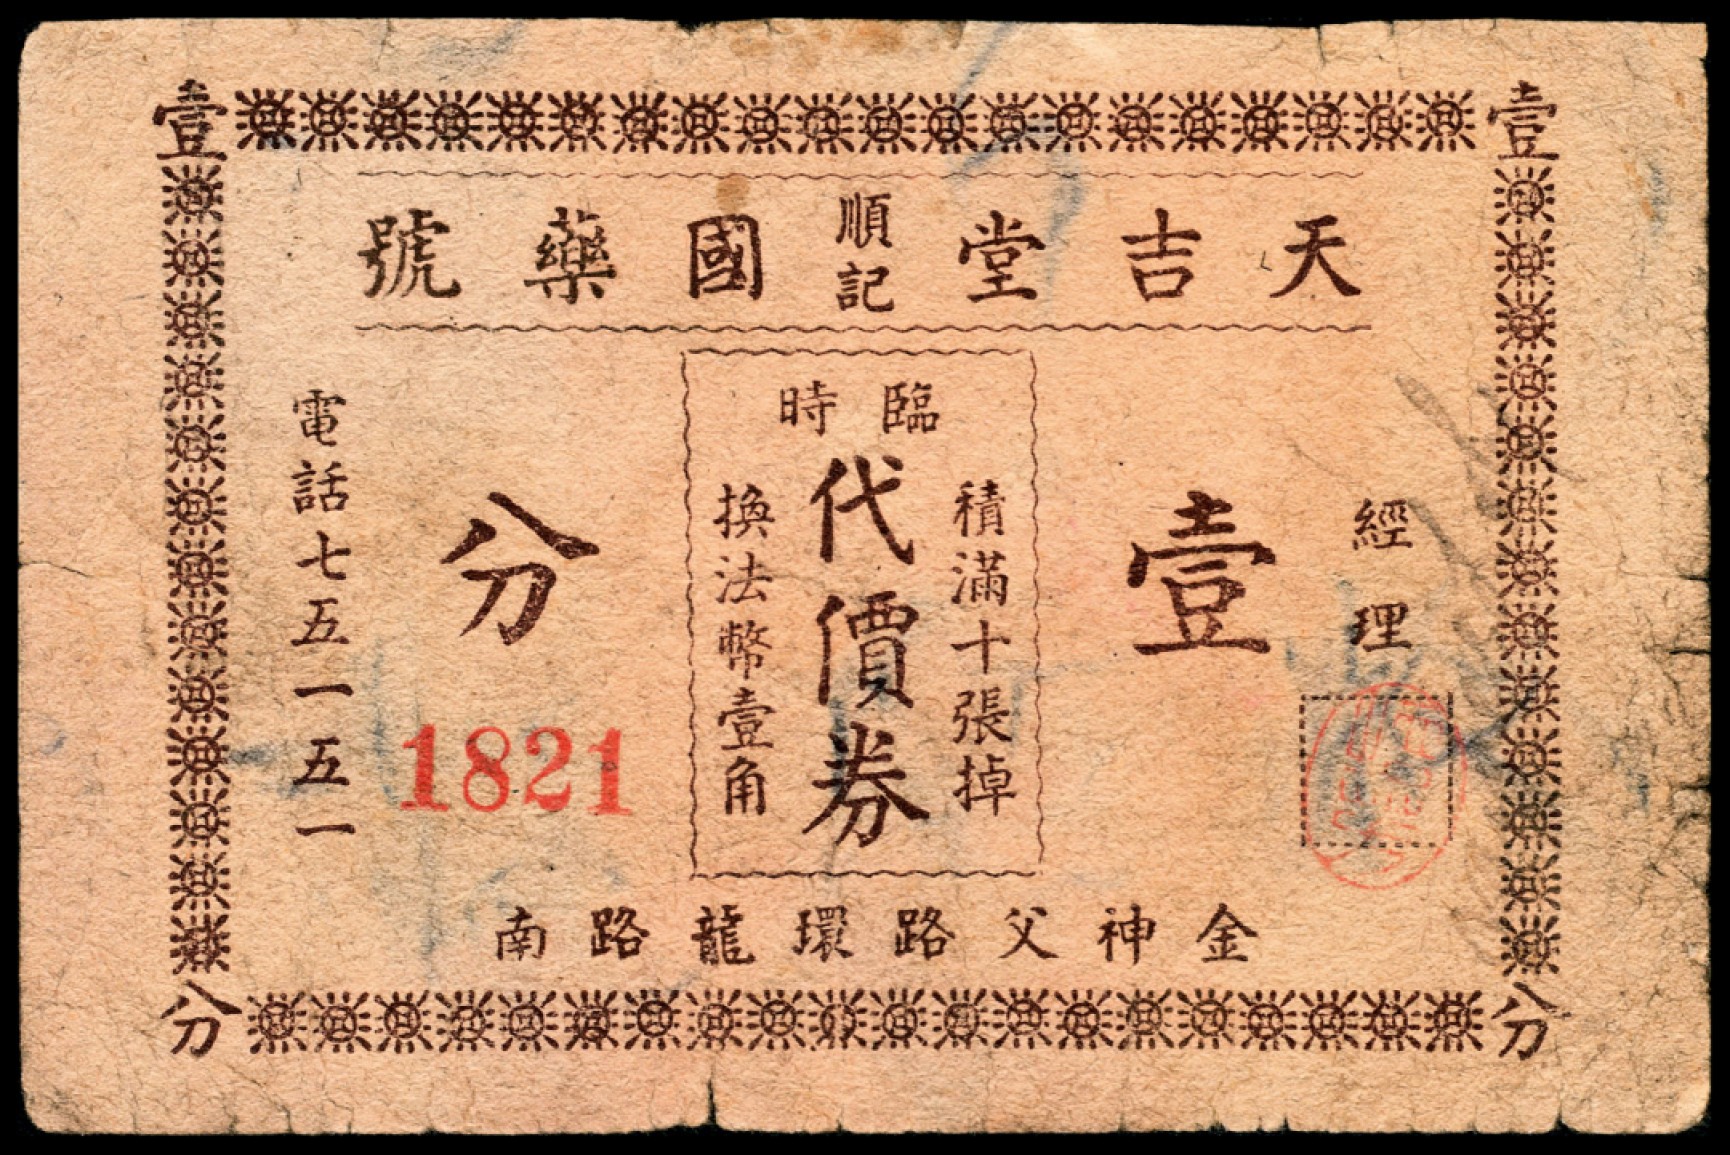 壹
壹
天吉堂順記國藥號
臨時
代價券
積滿十張掉
換法幣壹角
壹
分
經理
電話七五一五一
1821
金神父路環龍路南
分
分